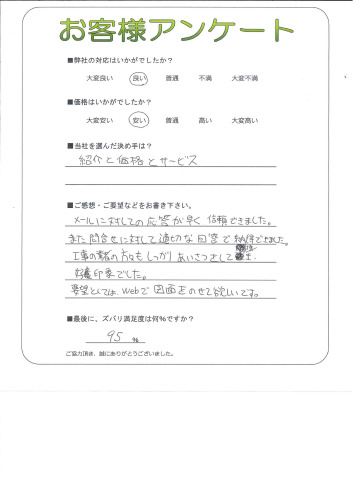 お客様アンケート
■弊社の対応はいかがでしたか？
大変良い 良い 普通 不満 大変不満
■価格はいかがでしたか？
大変安い 安い 普通 高い 大変高い
■当社を選んだ決め手は？
紹介と価格とサービス
■ご感想・ご要望などをお書き下さい。
メールに対しての応答が早く信頼できました。
また問合せに対して適切な回答で納得できました。
工事の業者の方々もしっかりあいさつをして
好印象でした。
要望としては、webで図面をのせて欲しいです。
■最後に、ズバリ満足度は何%ですか？
95 %
ご協力頂き、誠にありがとうございました。